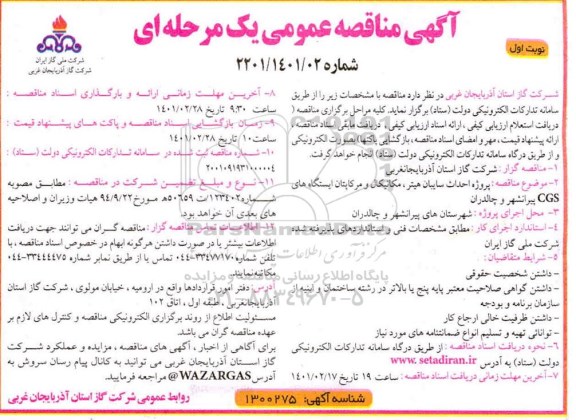 آگهی مناقصه عمومی یک مرحله ای
نوبت اول
شماره ۲۲۰۱/۱۴۰۱/۰۲
شرکت ملی گاز ایران
شرکت گاز آذربایجان غربی
شرکت گاز استان آذربایجان غربی در نظر دارد مناقصه با مشخصات زیر را از طریق
سامانه تدارکات الکترونیکی دولت (ستاد) برگزار نماید. کلیه مراحل برگزاری مناقصه (
دریافت استعلام ارزیابی کیفی ، ارائه اسناد ارزیابی کیفی ، دریافت مابقی اسناد مناقصه
ارائه پیشنهاد قیمت ، مهر و امضای اسناد مناقصه ، بازگشایی پاکتها) بصورت الکترونیکی
و از طریق درگاه سامانه تدارکات الکترونیکی دولت (ستاد) انجام خواهد گرفت.
۱- مناقصه گزار : شرکت گاز استان آذربایجانغربی
۲- موضوع مناقصه : پروژه احداث سایبان هیتر ، مکانیکال و مرکاپتان ایستگاه های
CGS پیرانشهر و چالدران
۳- محل اجرای پروژه : شهرستان های پیرانشهر و چالدران
۴- استاندارد اجرای کار : مطابق مشخصات فنی و استانداردهای پذیرفته شده
شرکت ملی گاز ایران
۵- شرایط متقاضیان :
- داشتن شخصیت حقوقی
- داشتن گواهی صلاحیت معتبر پایه پنج یا بالاتر در رشته ساختمان و ابنیه از
سازمان برنامه و بودجه
- داشتن ظرفیت خالی ارجاع کار
- توانائی تهیه و تسلیم انواع ضمانتنامه های مورد نیاز
۶- نحوه دریافت اسناد مناقصه : از طریق درگاه سامانه تدارکات الکترونیکی
دولت (ستاد) به آدرس www.setadiran.ir
۷- آخرین مهلت زمانی دریافت اسناد مناقصه : ساعت ۱۹ تاریخ ۱۴۰۱/۰۲/۱۷
۸- آخرین مهلت زمانی ارائه و بارگذاری اسناد مناقصه :
ساعت ۹:۳۰ تاریخ ۱۴۰۱/۰۲/۲۸
۹- زمان بازگشایی اسناد مناقصه و پاکت های پیشنهاد قیمت :
ساعت ۱۰ تاریخ ۱۴۰۱/۰۲/۲۸
۱۰- شماره مناقصه ثبت شده در سامانه تدارکات الکترونیکی دولت (ستاد) :
۲۰۰۱۰۹۱۹۳۱۰۰۰۰۰۴
۱۱- نوع و مبلغ تضمین شرکت در مناقصه : مطابق مصوبه
شماره ۱۲۳۴۰۲/ت۵۰۶۵۹ه مورخ ۹۴/۹/۲۲ هیات وزیران و اصلاحیه
های بعدی آن خواهد بود.
۱۲- اطلاعات تماس مناقصه گزار : مناقصه گران می توانند جهت دریافت
اطلاعات بیشتر یا در صورت داشتن هرگونه ابهام در خصوص اسناد مناقصه ، با
تلفن شماره ۳۳۴۷۷۱۷۰-۰۴۴ تماس یا از طریق نمابر شماره ۳۳۴۴۴۴۷۵-۰۴۴
مکاتبه نمایند.
آدرس : دفتر امور قراردادها واقع در ارومیه ، خیابان مولوی ، شرکت گاز استان
آذربایجانغربی ، طبقه اول ، اتاق ۱۰۲
مسئولیت اطلاع از روند برگزاری الکترونیکی مناقصه و کنترل های لازم بر
عهده مناقصه گران می باشد.
برای آگاهی از اخبار ، آگهی های مناقصه ، مزایده و عملکرد شرکت
گاز استان آذربایجان غربی می توانید به کانال پیام رسان سروش به
آدرس WAZARGAS@ مراجعه فرمایید.
شناسه آگهی: ۱۳۰۰۲۷۵
روابط عمومی شرکت گاز استان آذربایجان غربی
پایگاه اطلاع رسانی مناقصه و مزایده